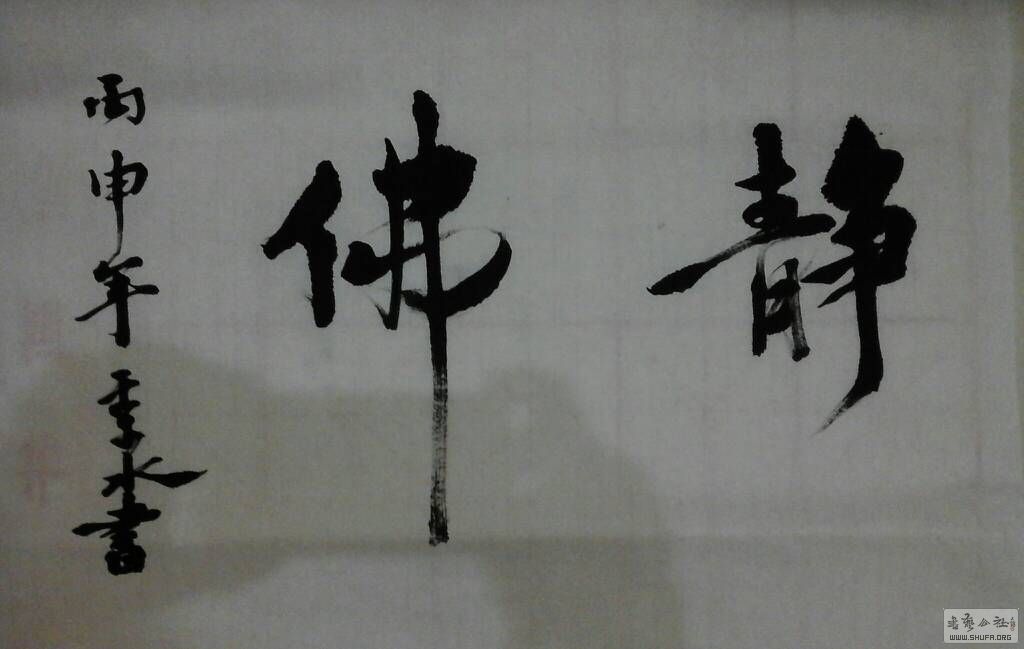 静佛
丙申年季水書
书艺公社
WWW.SHUFA.ORG